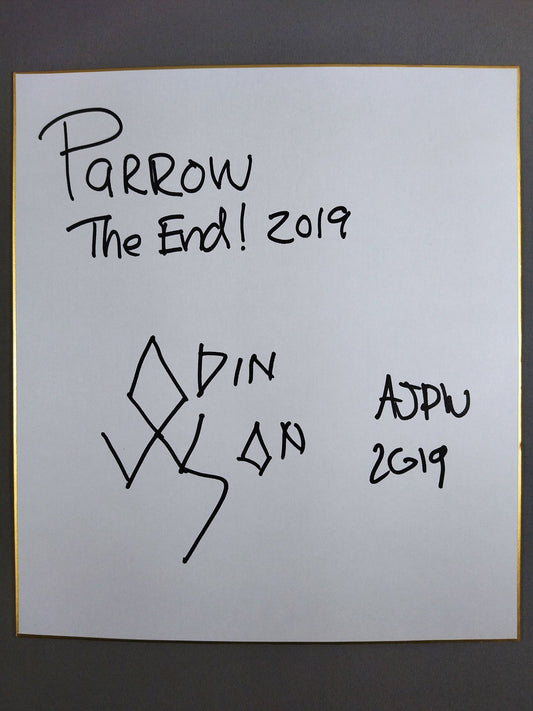 PARROW
The End! 2019
ODIN
SON
AJPW
2019